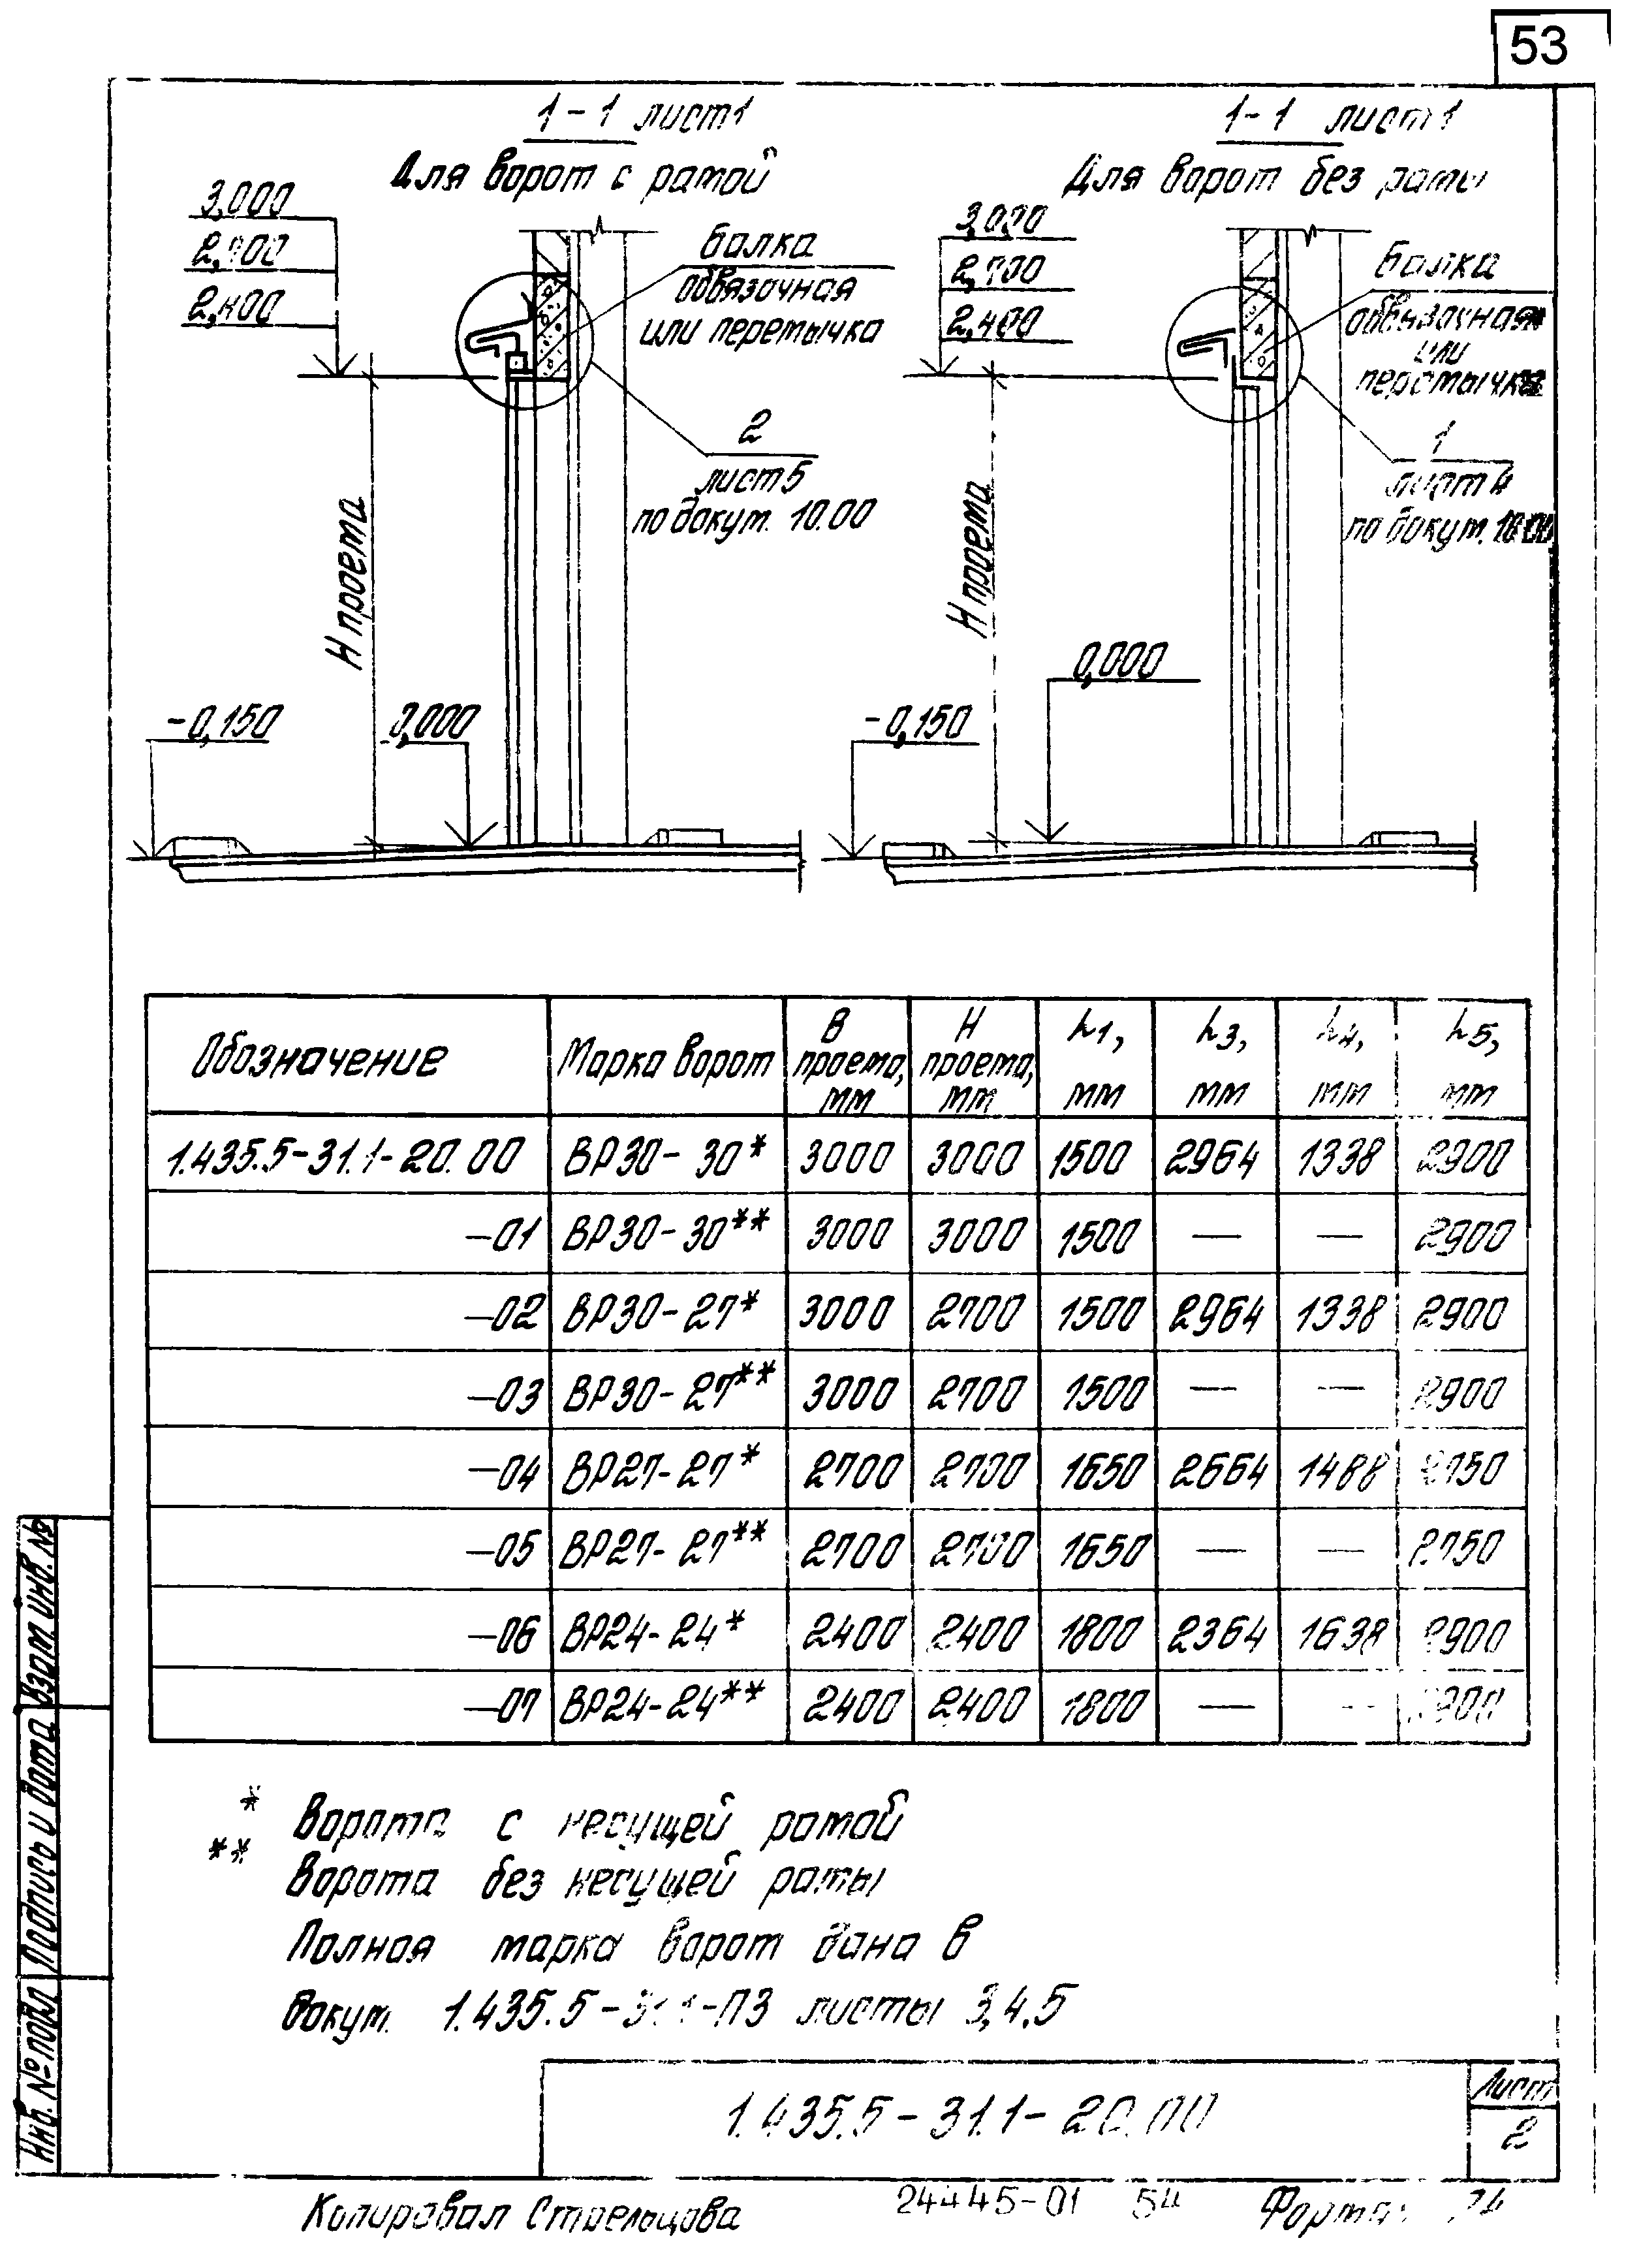 53
1-1 лист 1
Для ворот с рамой
3,000
2,700
2,400
Балка
обвязочная
или перемычка
2
лист 5
по докум. 10.00
Н проема
-0,150
0,000
1-1 лист 1
Для ворот без рамы
3,000
2,700
2,400
Балка
обвязочная
или
перемычка
1
лист 4
по докум. 10.00
Н проема
0,000
-0,150
Обозначение Марка ворот В проема, мм Н проема, мм h1, мм h3, мм h4, мм h5, мм
1.435.5-31.1-20.00 ВР30-30* 3000 3000 1500 2964 1338 2900
-01 ВР30-30** 3000 3000 1500 — — 2900
-02 ВР30-27* 3000 2700 1500 2964 1338 2900
-03 ВР30-27** 3000 2700 1500 — — 2900
-04 ВР27-27* 2700 2700 1650 2664 1488 2750
-05 ВР27-27** 2700 2700 1650 — — 2750
-06 ВР24-24* 2400 2400 1800 2364 1638 2900
-07 ВР24-24** 2400 2400 1800 — — 2900
* Ворота с несущей рамой
** Ворота без несущей рамы
Полная марка ворот дана в
докум. 1.435.5-31.1-ПЗ листы 3,4.5
Инв. № подл Подпись и дата Взам инв. №
1.435.5-31.1-20.00
Лист
2
Копировал Стрельцова
24445-01 54
Формат